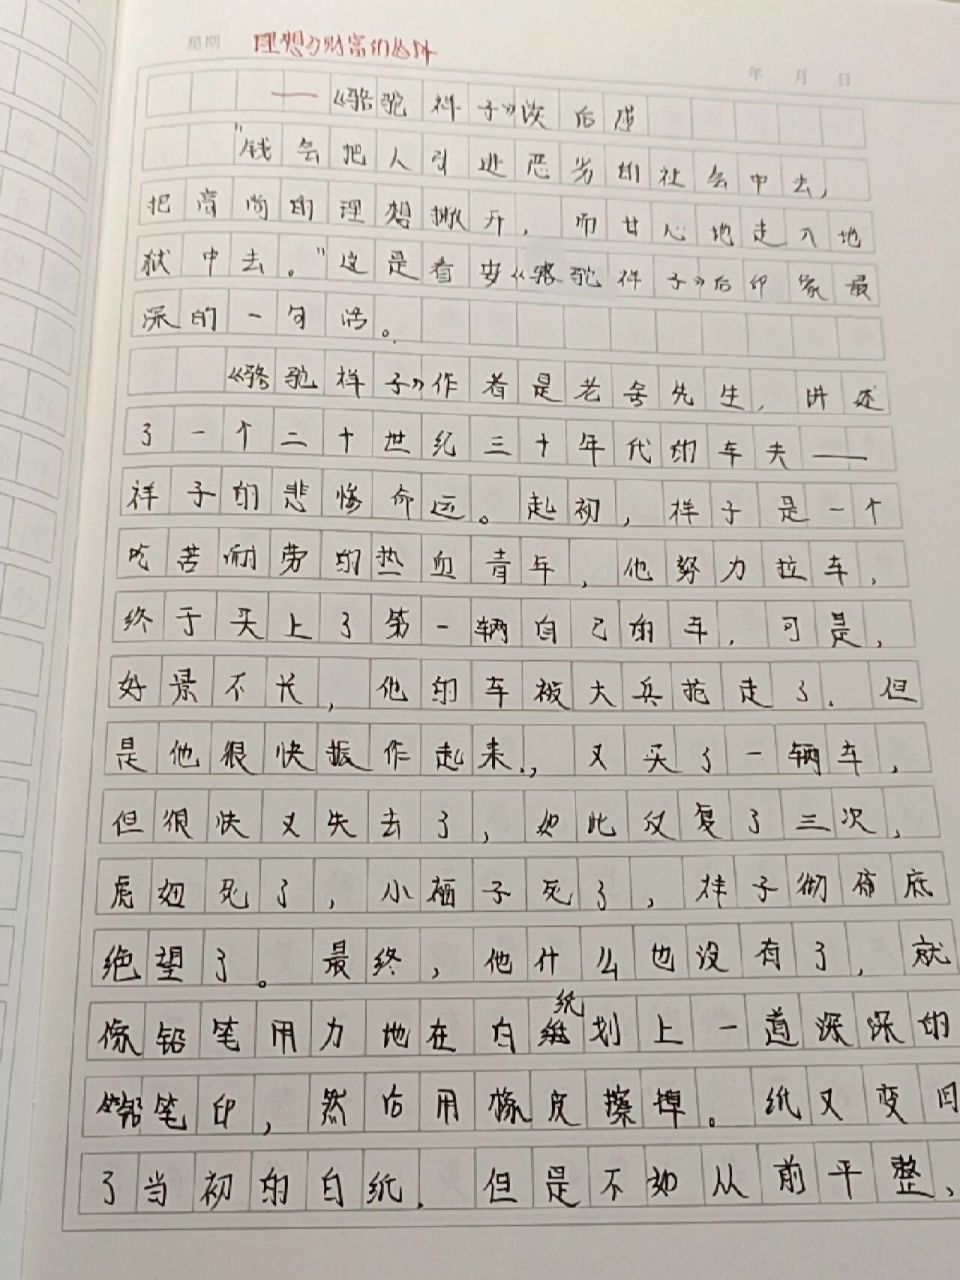 星期
理想与财富的
年 月 日
——《骆驼祥子》读后感
“钱会把人引进恶劣的社会中去,
把高尚的理想撇开,而甘心地走入地
狱中去。”这是看安《骆驼祥子》后印象最
深的一句话。
《骆驼祥子》作者是老舍先生,讲述
了一个二十世纪三十年代的车夫——
祥子的悲惨命运。起初,祥子是一个
吃苦耐劳的热血青年,他努力拉车,
终于买上了第一辆自己的车,可是,
好景不长,他的车被大兵抢走了.但
是他很快振作起来,又买了一辆车,
但很快又失去了,如此反复了三次,
虎妞死了,小福子死了,祥子彻底
绝望了。最终,他什么也没有了,就
像铅笔用力地在白纸划上一道深深的
铅笔印,然后用橡皮擦掉。纸又变回
了当初的白纸.但是不如从前平整、